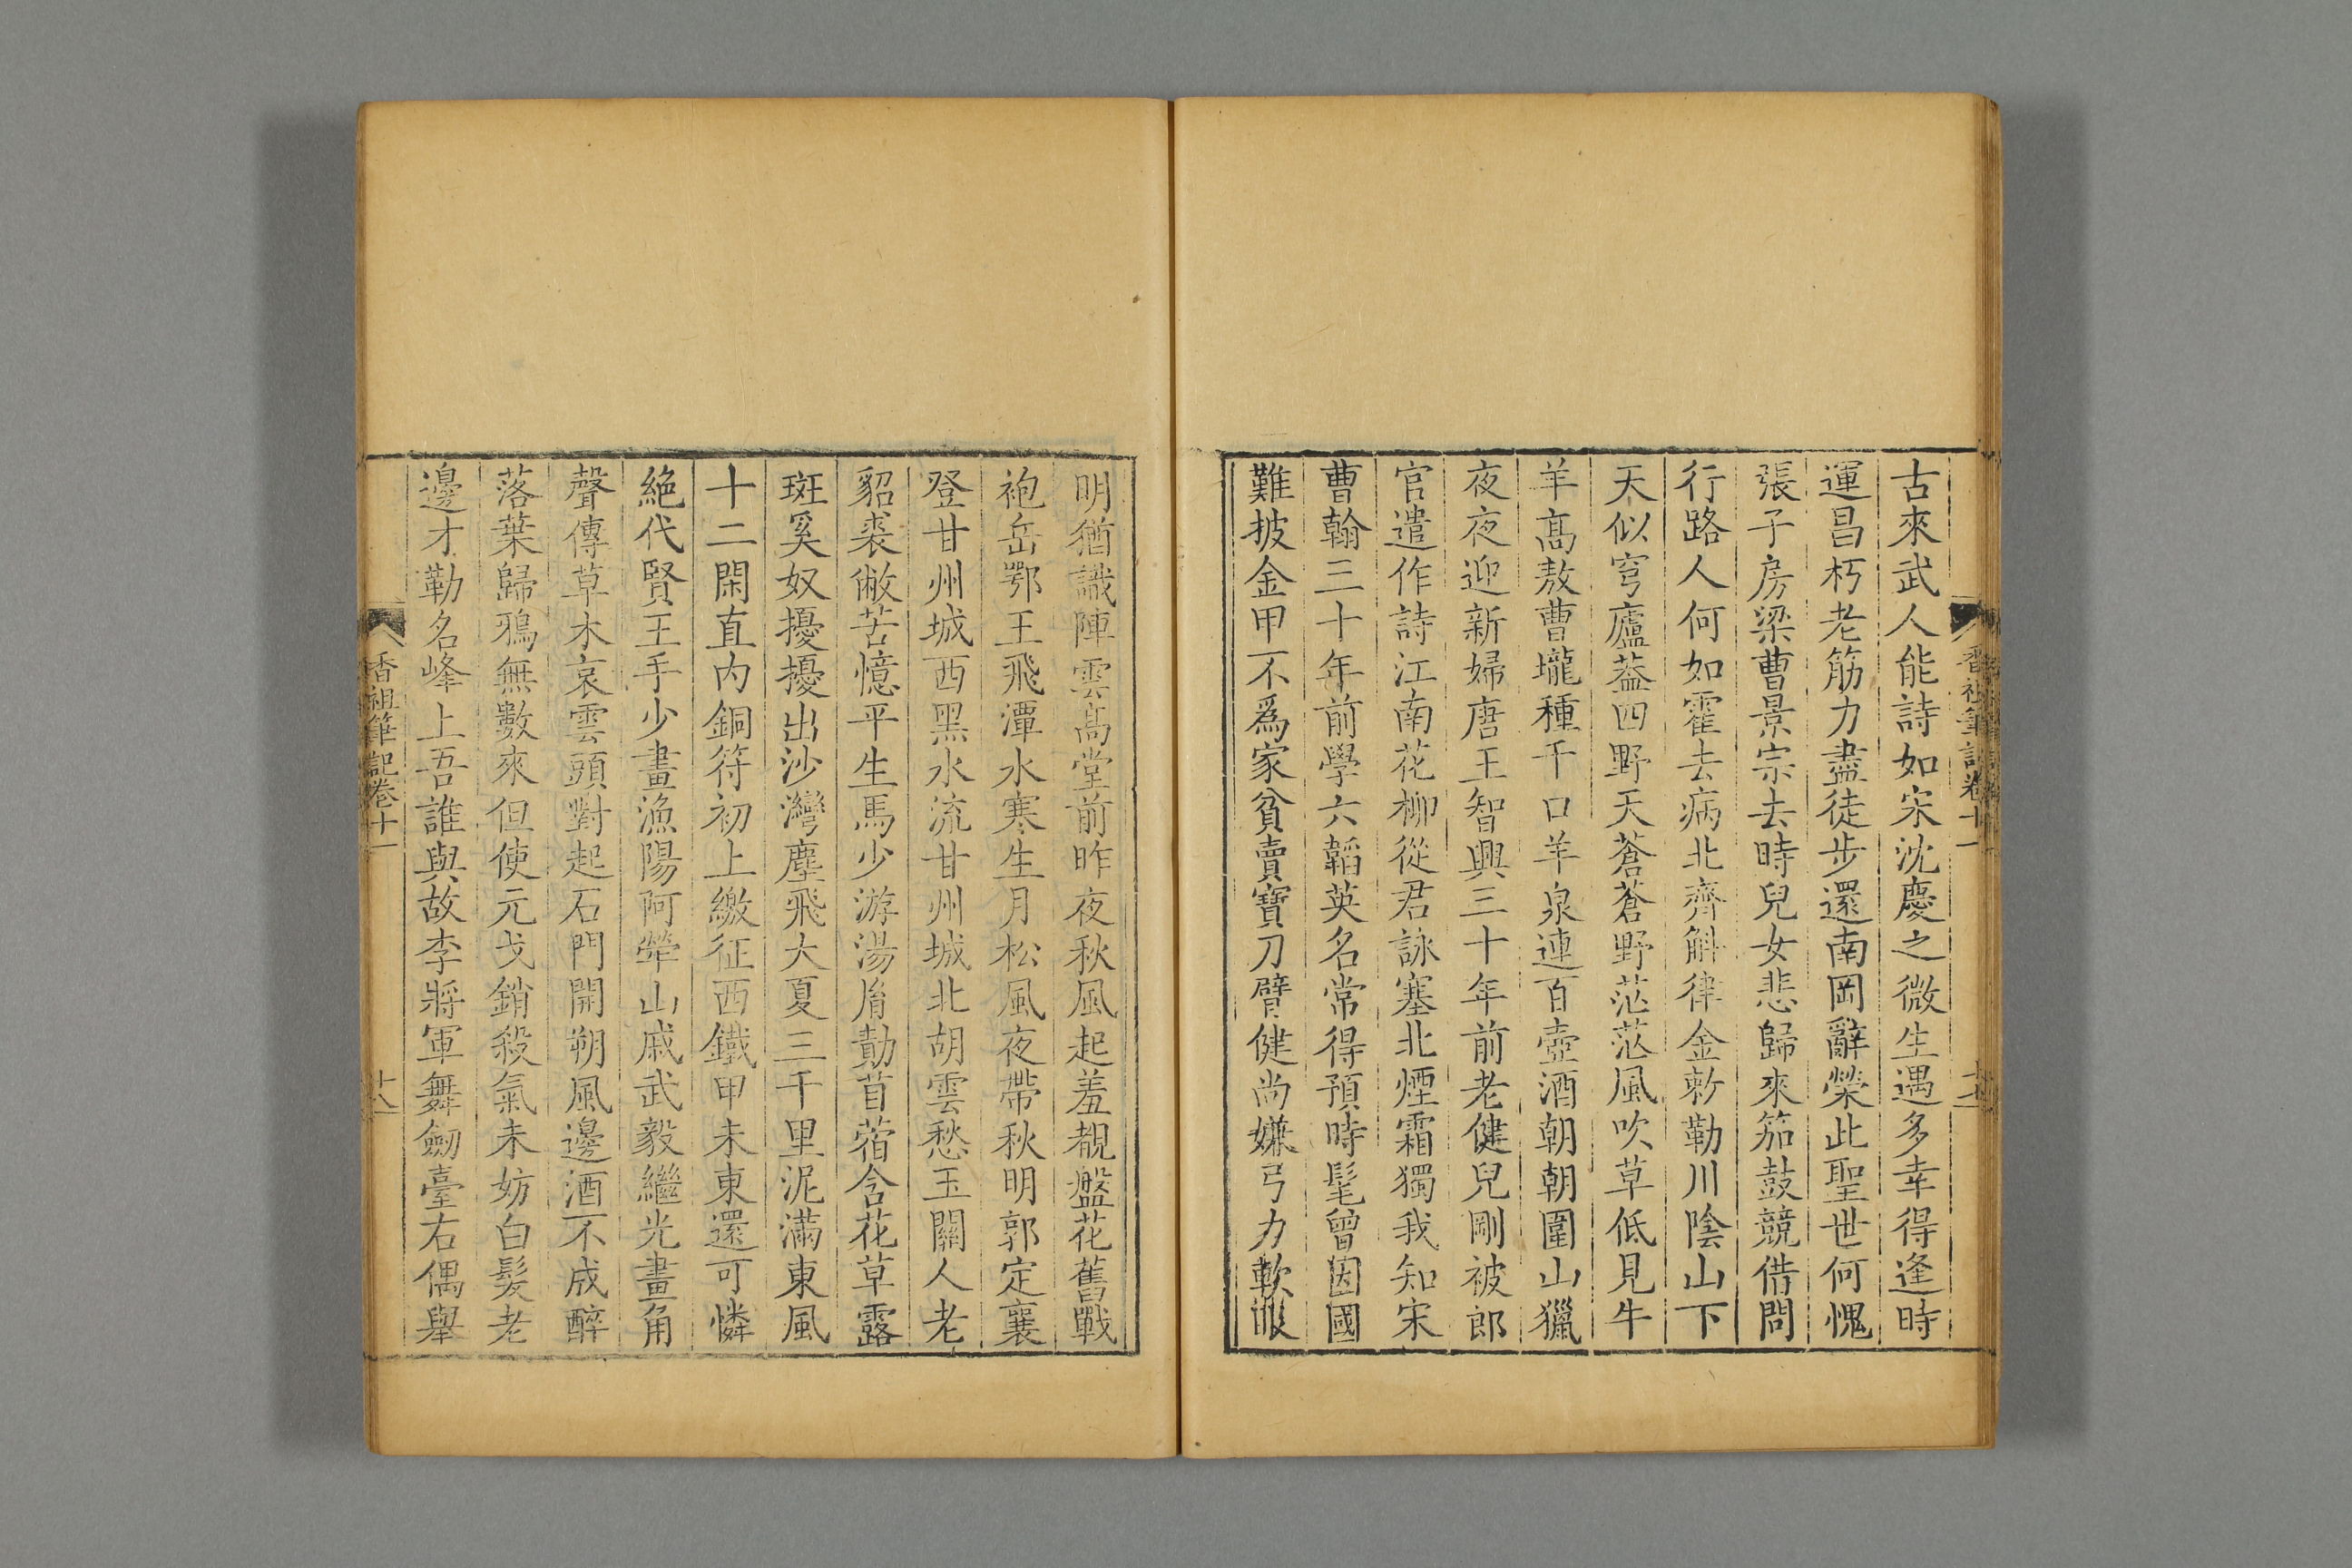 香祖筆記卷十一
十七
古來武人能詩如宋沈慶之微生遇多幸得逢時
運昌朽老筋力盡徒步還南岡辭榮此聖世何愧
張子房梁曹景宗去時兒女悲歸來笳鼓競借問
行路人何如霍去病北齊斛律金敕勒川陰山下
天似穹廬蓋四野天蒼蒼野茫茫風吹草低見牛
羊高敖曹壠種千口羊泉連百壺酒朝朝圍山獵
夜夜迎新婦唐王智興三十年前老健兒剛被郎
官遣作詩江南花柳從君詠塞北煙霜獨我知宋
曹翰三十年前學六韜英名常得預時髦曾因國
難披金甲不爲家貧賣寶刀臂健尚嫌弓力軟眼
明猶識陣雲高堂前昨夜秋風起羞覩盤花舊戰
袍岳鄂王飛潭水寒生月松風夜帶秋明郭定襄
登甘州城西黑水流甘州城北胡雲愁玉關人老
貂裘敝苦憶平生馬少游湯胤勣苜蓿含花草露
斑奚奴擾擾出沙灣塵飛大夏三千里泥滿東風
十二閑直內銅符初上繳征西鐵甲未東還可憐
絶代賢王手少畫漁陽阿犖山戚武毅繼光畫角
聲傳草木哀雲頭對起石門開朔風邊酒不成醉
落葉歸鴉無數來但使元戈銷殺氣未妨白髮老
邊才勒名峰上吾誰與故李將軍舞劒臺右偶舉
香祖筆記卷十一
十八